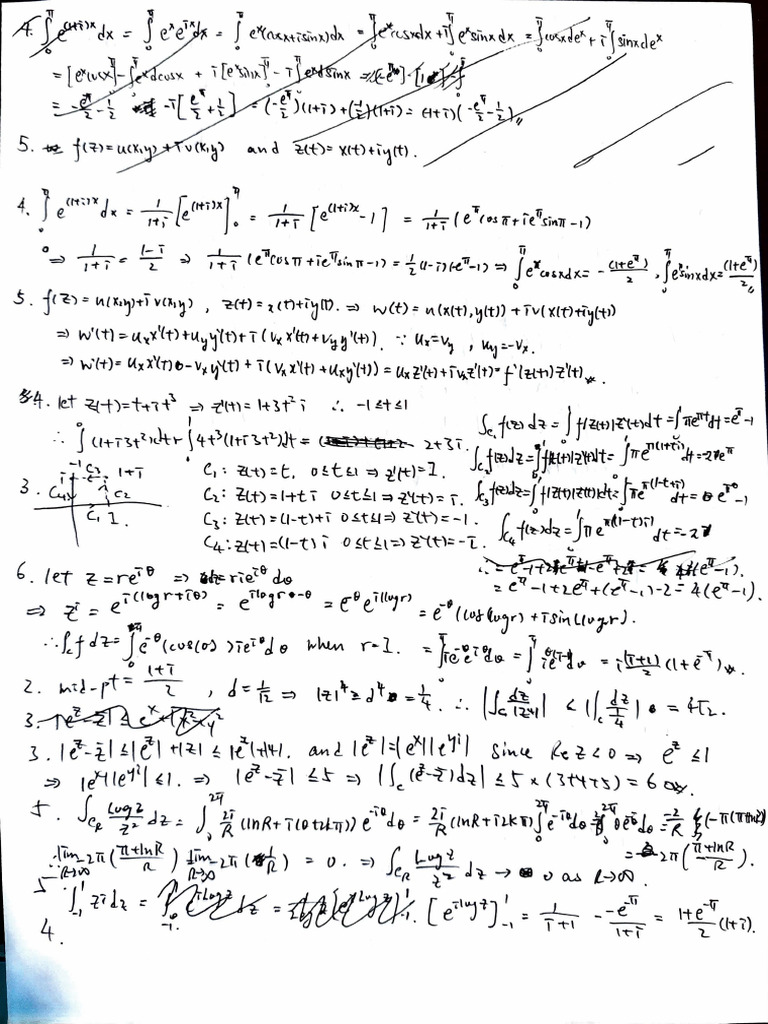 4. ∫₀^π e^{(1+i)x}dx = ∫₀^π e^x e^{ix}dx = ∫₀^π e^x(cosx+isinx)dx = ∫₀^π e^x cosxdx + i∫₀^π e^x sinxdx = ∫₀^π cosxde^x + i∫₀^π sinxde^x
= [e^x cosx]₀^π - ∫₀^π e^x dcosx + i[e^x sinx]₀^π - i∫₀^π e^x dsinx
= -e^π/2 - 1/2 - i[e^π/2 + 1/2] = (-e^π/2)(1+i) + (-1/2)(1+i) = (1+i)(-e^π/2 - 1/2)
5. f(z) = u(x,y) + iv(x,y) and z(t) = x(t) + iy(t).
4. ∫₀^π e^{(1+i)x}dx = 1/(1+i) [e^{(1+i)x}]₀^π = 1/(1+i) [e^{(1+i)x} - 1] = 1/(1+i) (e^π cosπ + ie^π sinπ - 1)
⇒ 1/(1+i) = (1-i)/2 ⇒ 1/(1+i) (e^π cosπ + ie^π sinπ - 1) = 1/2 (1-i)(-e^π-1) ⇒ ∫₀^π e^x cosxdx = -(1+e^π)/2, ∫₀^π e^x sinxdx = (1+e^π)/2
5. f(z) = u(x,y) + iv(x,y), z(t) = x(t) + iy(t). ⇒ w(t) = u(x(t),y(t)) + iv(x(t)+iy(t))
⇒ w'(t) = u_x x'(t) + u_y y'(t) + i(v_x x'(t) + v_y y'(t)). ∵ u_x = v_y, u_y = -v_x.
⇒ w'(t) = u_x x'(t) - v_x y'(t) + i(v_x x'(t) + u_x y'(t)) = u_x z'(t) + iv_x z'(t) = f'(z(t))z'(t).
4. let z(t) = t+it³ ⇒ z'(t) = 1+3t²i ∴ -1≤t≤1
∴ ∫₋₁⁰ (1+i3t²)dt + ∫₀¹ 4t³(1+i3t²)dt = 2+3i.
3. i C₃ 1+i C₄ C₂ C₁ 1.
C₁: z(t) = t, 0≤t≤1 ⇒ z'(t) = 1.
C₂: z(t) = 1+ti 0≤t≤1 ⇒ z'(t) = i.
C₃: z(t) = (1-t)+i 0≤t≤1 ⇒ z'(t) = -1.
C₄: z(t) = (1-t)i 0≤t≤1 ⇒ z'(t) = -i.
∫_{C₁} f(z)dz = ∫₀¹ f(z(t))z'(t)dt = ∫πe^{πt}dt = e^π-1
∫_{C₂} f(z)dz = ∫₀¹ f(z(t))z'(t)dt = ∫πe^{π(1+ti)}dt = -2e^π
∫_{C₃} f(z)dz = ∫₀¹ f(z(t))z'(t)dt = ∫πe^{π(1-t+i)}dt = e^π-1
∫_{C₄} f(z)dz = ∫πe^{π((1-t)i)}dt = -2
= e^π-1+2e^π+(e^π-1)-2 = 4(e^π-1).
6. let z = re^{iθ} ⇒ dz = rie^{iθ}dθ
⇒ z^i = e^{i(logr+iθ)} = e^{ilogr-θ} = e^{-θ}e^{i(logr)} = e^{-θ}(cos(logr)+isin(logr)).
∴ ∫_C f dz = ∫₀^π e^{-θ}(cos(0))ie^{iθ}dθ when r=1. = ∫₀^π ie^{-θ}e^{iθ}dθ = ∫₀^π ie^{θ(i-1)}dθ = i(i+1)/2 (1+e^{-π}).
2. mid-pt = (1+i)/2, d = 1/√2 ⇒ |z|⁴ ≥ d⁴ = 1/4. ∴ |∫_C dz/|z⁴|| < |∫_C dz/(1/4)| = 4√2.
3. |e^z - z̄| ≤ e^x + √(x²+y²)
3. |e^z-z̄| ≤ |e^z|+|z| ≤ |e^z|+|4|. and |e^z| = |e^x||e^{yi}| since Re z<0 ⇒ e^z ≤ 1
⇒ |e^x||e^{yi}| ≤ 1. ⇒ |e^z-z̄| ≤ 5 ⇒ |∫_C (e^z-z̄)dz| ≤ 5×(3+4+5) = 60.
5. ∫_{C_R} Logz/z² dz = ∫₀^{2π} 2i/R (lnR+i(θ+2kπ)) e^{-iθ}dθ = 2i/R (lnR+i2kπ) ∫₀^{2π} e^{-iθ}dθ - 2/R ∫₀^{2π} θe^{-iθ}dθ = -2/R
= 2π((π+lnR)/R).
∴ lim_{R→∞} 2π((π+lnR)/R) lim_{R→∞} 2π(1/R) = 0. ⇒ ∫_{C_R} Logz/z² dz → 0 as R→∞.
5 ∫₋₁¹ z^i dz = [e^{ilogz}]₋₁¹ = 1/(i+1) - (-e^{-π})/(1+i) = (1+e^{-π})/2 (1-i).
4.